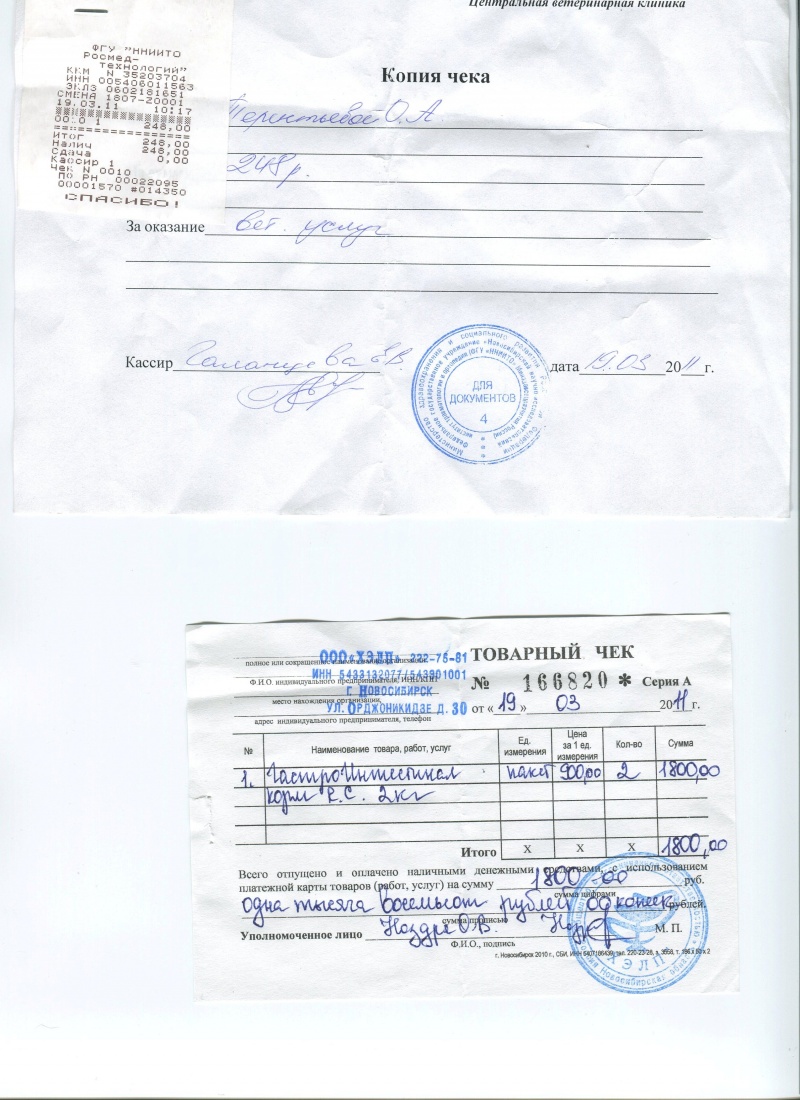 Центральная ветеринарная клиника
Копия чека
ФГУ "ННИИТО
Росмед-
технологий"
ККМ N 35203704
ИНН 005406011563
ЭКЛЗ 0602181651
СМЕНА 1807-Z0001
19.03.11 10:17
00:0 1 248,00
ИТОГ 248,00
Налич 248,00
Сдача 0,00
Кассир 1
Чек N 0010
ПО РН 00022095
00001570 #014350
СПАСИБО!
О.А
248 р.
За оказание вет. услуг
Кассир Е.В. дата 19.03 2011 г.
ДЛЯ
ДОКУМЕНТОВ
4
ООО «ХЭЛП» 222-75-81
полное или сокращенное наименование организации
ИНН 5433132077/543301001
Ф.И.О. индивидуального предпринимателя, ИНН/КПП
г Новосибирск
место нахождения организации,
ул. Орджоникидзе д. 30
адрес индивидуального предпринимателя, телефон
ТОВАРНЫЙ ЧЕК
№ 166820 * Серия А
от «19» 03 2011 г.
№ Наименование товара, работ, услуг Ед. измерения Цена за 1 ед. измерения Кол-во Сумма
1. ГастроИнтестинал пакет 900,00 2 1800,00
корм R.C. 2кг
Итого X X X 1800,00
Всего отпущено и оплачено наличными денежными средствами, с использованием
платежной карты товаров (работ, услуг) на сумму 1800 - 00 руб.
сумма цифрами
одна тысяча восемьсот рублей 00 копеек рублей.
сумма прописью
Уполномоченное лицо Ноздре О.В. М. П.
Ф.И.О., подпись
ХЭЛП